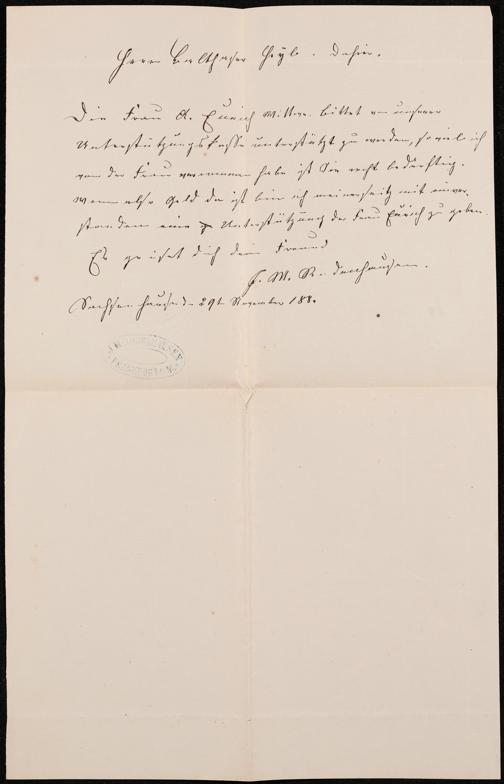 Herrn Balthaser Heyl. dahier.
Die Frau A. Eurich Wittwe. bittet von unserer
Unterstützungskasse unterstützt zu werden, so viel ich
von der Frau vernommen habe ist Sie recht bedürftig.
wenn also Geld da ist bin ich meinerseitz mit einver
standen eine Unterstützung der Frau Eurich zu geben
Es grüset dich dein Freund
J. M.
Sachsenhausen 29t November 188
J.M.
FRANKFURT a/M.